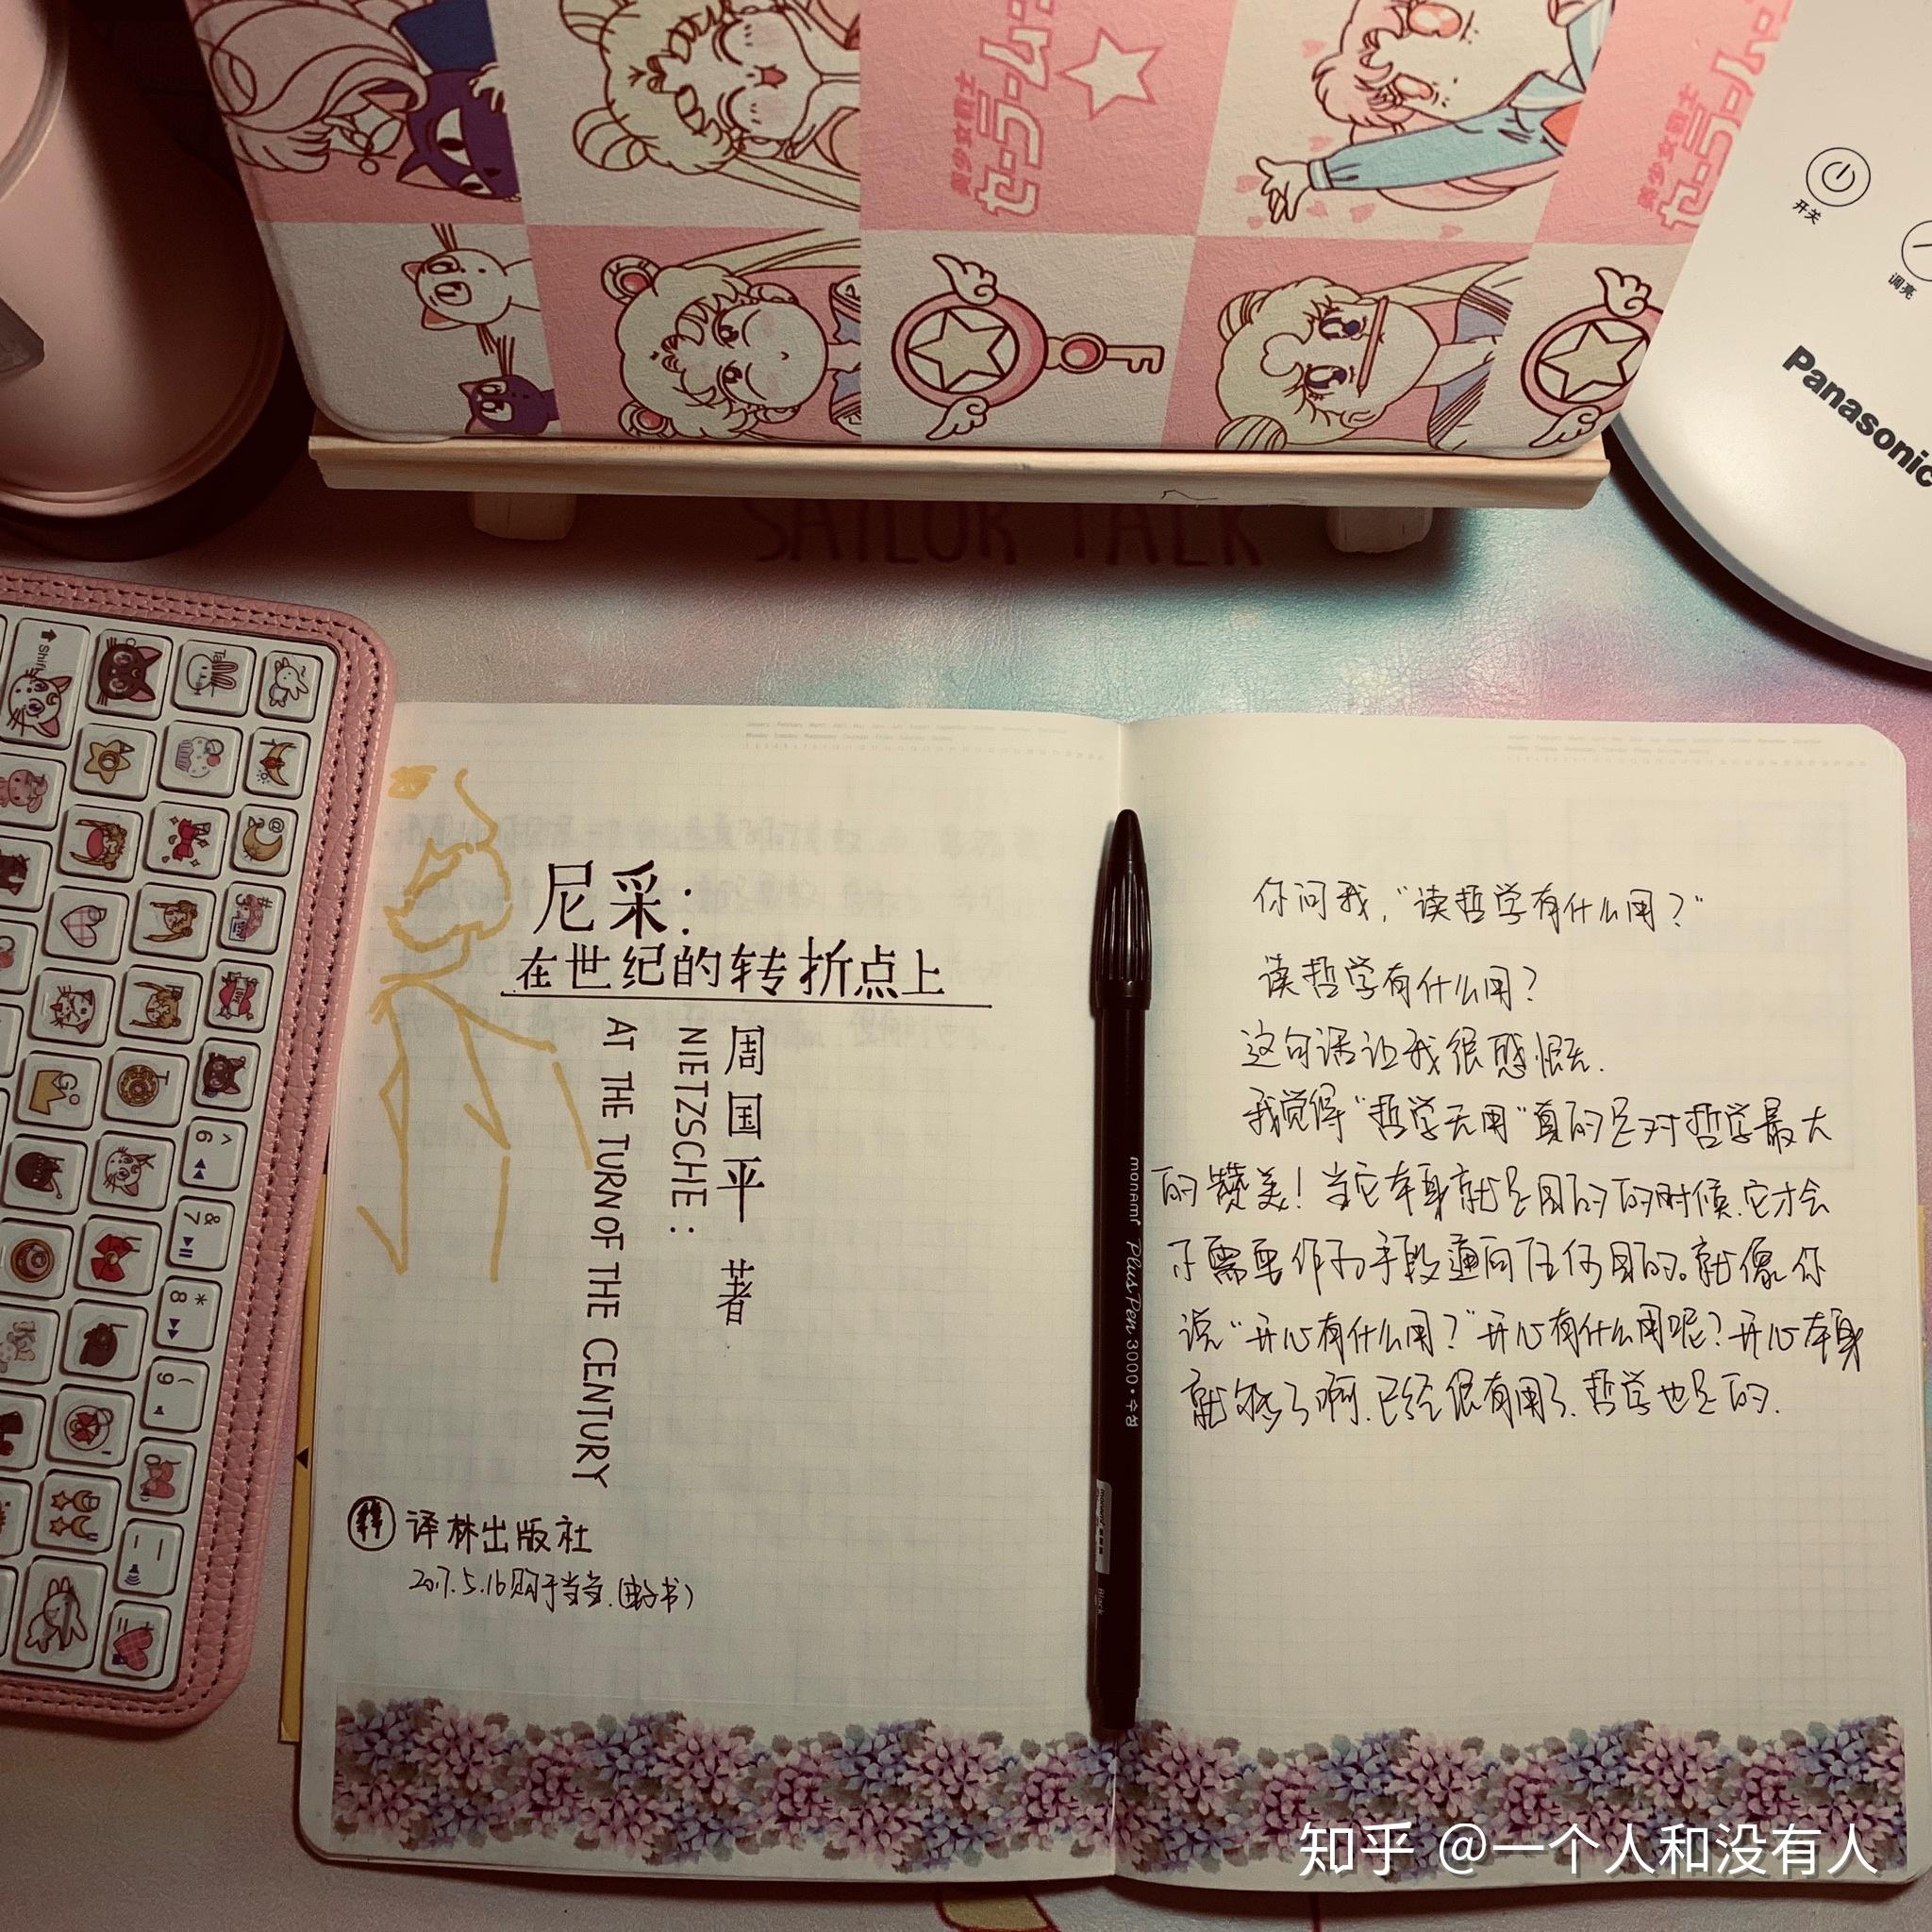 美少女戦士
セーラームーン
美少女戦士
セーラームーン
开关
调亮
Panasonic
SAILOR TALK
Shift
Tab
@
#
G
T
^
6
&
7
*
8
(
9
尼采:
在世纪的转折点上
周国平 著
NIETZSCHE:
AT THE TURN OF THE CENTURY
译林出版社
2017.5.16购于当当.(电子书)
monami Plus Pen 3000 • 수성
Black
你问我,“读哲学有什么用?”
读哲学有什么用?
这句话让我很感慨.
我觉得“哲学无用”真的是对哲学最大
的赞美!当它本身就是目的的时候.它才会
不需要作为手段通向任何目的。就像你
说“开心有什么用?”开心有什么用呢?开心本身
就够了啊.已经很有用了.哲学也是的.
知乎 @一个人和没有人